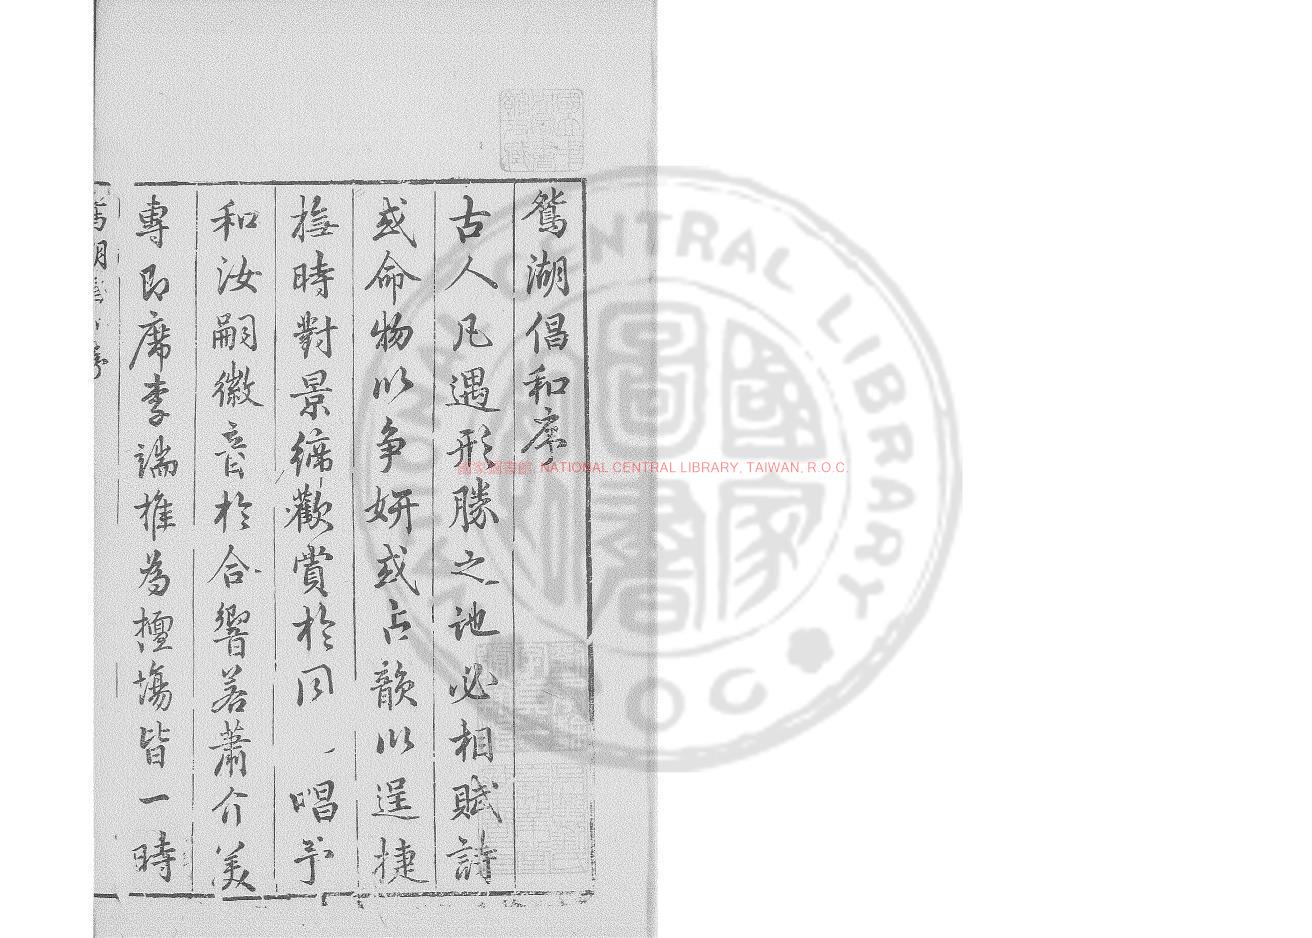 鴛湖倡和序
古人凡遇形勝之地必相賦詩
或命物以争妍或占韻以逞捷
撫時對景締歡賞於同一唱予
和汝嗣徽音於合響若蕭介美
專即席李端推為檀塲皆一時
國家圖書館, NATIONAL CENTRAL LIBRARY, TAIWAN, R.O.C.
NATIONAL CENTRAL LIBRARY
ROC
國家圖書